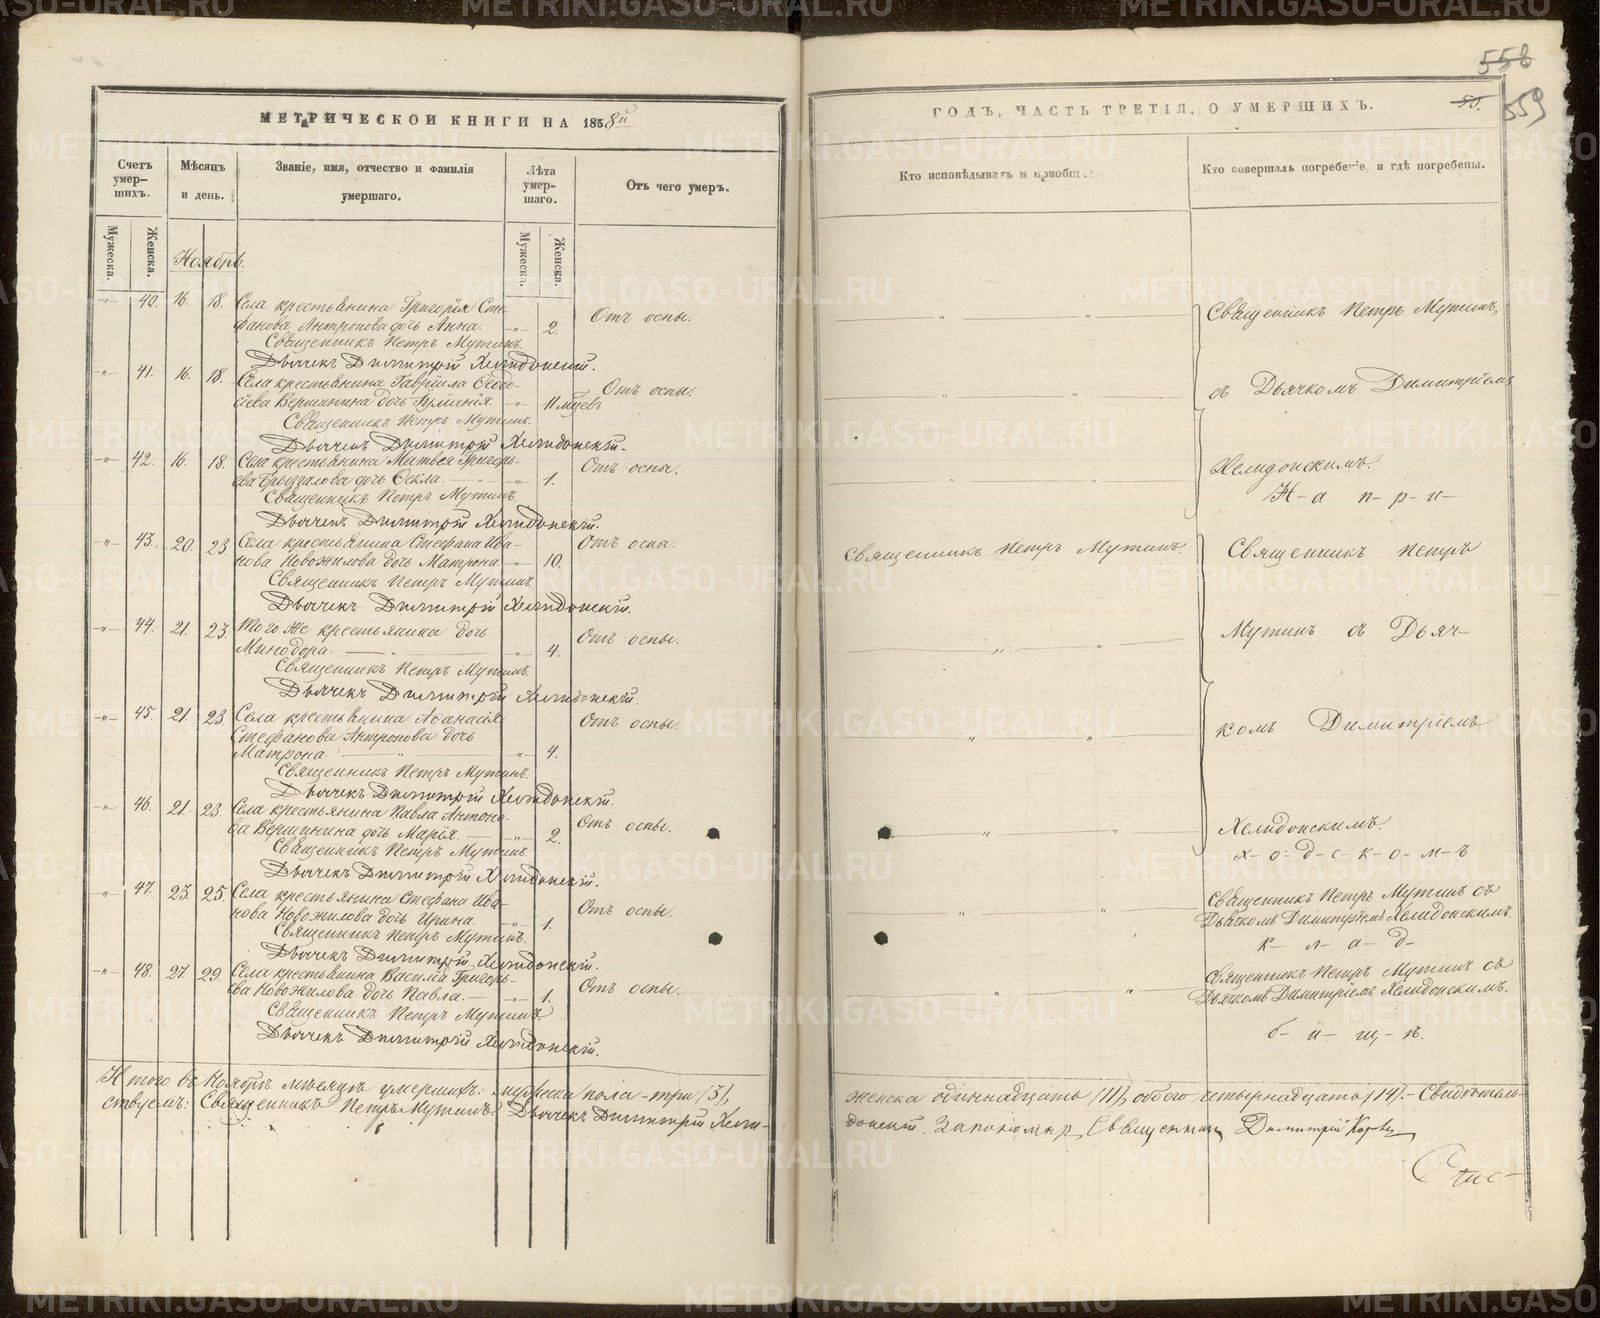 558
559
МЕТРИЧЕСКОЙ КНИГИ НА 1858й
ГОДЪ, ЧАСТЬ ТРЕТІЯ, О УМЕРШИХЪ.
Счетъ умер-
шихъ.
Мѣсяцъ
и день.
Званіе, имя, отчество и фамилія
умершаго.
Лѣта
умер-
шаго.
Отъ чего умеръ.
Кто исповѣдывалъ и приобщ
Кто совершалъ погребеніе, и гдѣ погребены.
Мужеска.
Женска.
Мужеска.
Женска.
Ноябрь.
40. 16. 18. Села крестьянина Григорія Сте-
фанова Антропова дочь Анна. 2. Отъ оспы.
Священникъ Петръ Мутинъ.
Дьячекъ Димитрій Хелидонскій.
41. 16. 18. Села крестьянина Гавріила Ѳедо-
сѣева Вершинина дочь 11 мцевъ Отъ оспы.
Священникъ Петръ Мутинъ.
Дьячекъ Димитрій Хелидонскій.
42. 16. 18. Села крестьянина Матвея Григорь-
ева дочь Ѳекла. 1. Отъ оспы.
Священникъ Петръ Мутинъ.
Дьячекъ Димитрій Хелидонскій.
43. 20. 23 Села крестьянина Стефана Ива-
нова Новожилова дочь Матрона 10. Отъ оспы.
Священникъ Петръ Мутинъ.
Дьячекъ Димитрій Хелидонскій.
44. 21. 23 Того же крестьянина дочь
Минодора. 4. Отъ оспы.
Священникъ Петръ Мутинъ.
Дьячекъ Димитрій Хелидонскій.
45. 21. 23 Села крестьянина Аѳанасія
Стефанова Антропова дочь
Матрона 4. Отъ оспы.
Священникъ Петръ Мутинъ.
Дьячекъ Димитрій Хелидонскій.
46. 21. 23. Села крестьянина Павла Антоно-
ва Вершинина дочь Марія. 2. Отъ оспы.
Священникъ Петръ Мутинъ.
Дьячекъ Димитрій Хелидонскій.
47. 23. 25. Села крестьянина Стефана Ива-
нова Новожилова дочь Ирина. 1. Отъ оспы.
Священникъ Петръ Мутинъ.
Дьячекъ Димитрій Хелидонскій.
48. 27. 29. Села крестьянина Василія Григорь-
ева Новожилова дочь Павла. 1. Отъ оспы.
Священникъ Петръ Мутинъ.
Дьячекъ Димитрій Хелидонскій.
Священникъ Петръ Мутинъ,
съ Дьячкомъ Димитріемъ
Хелидонскимъ.
Н-а п-р-и-
Священникъ Петръ Мутинъ.
Священникъ Петръ
Мутинъ съ Дьяч-
комъ Димитріемъ
Хелидонскимъ.
х-о-д-с-к-о-м-ъ
Священникъ Петръ Мутинъ съ
Дьячкомъ Димитріемъ Хелидонскимъ.
к-л-а-д-
Священникъ Петръ Мутинъ съ
Дьячкомъ Димитріемъ Хелидонскимъ.
б-и-щ-ѣ.
Итого въ Ноябрѣ мѣсяцѣ умершихъ: мужеска пола-три (3), женска одиннадцать (11), обоего четырнадцать (14).- Свидѣтель-
ствуемъ: Священникъ Петръ Мутинъ. Дьячекъ Димитрій Хели-донскій. Священникъ Димитрій
METRIKI.GASO-URAL.RU